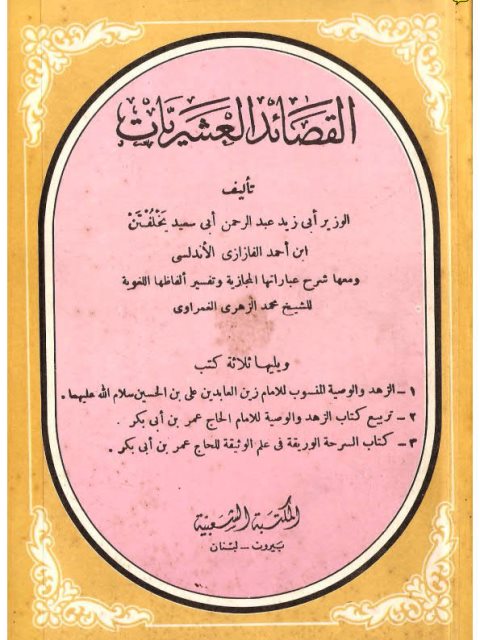 القصائد العشريات
تأليف
الوزير أبي زيد عبد الرحمن أبى سعيد يَخْلُفْتَنْ
ابن أحمد الفازازى الأندلسى
ومعها شرح عباراتها المجازية وتفسير ألفاظها اللغوية
للشيخ محمد الزهرى الغمراوى
ويليها ثلاثة كتب
١ – الزهد والوصية المنسوب للامام زين العابدين على بن الحسين سلام الله عليهما .
٢ – تربيع كتاب الزهد والوصية للامام الحاج عمر بن أبى بكر .
٣ – كتاب السرحة الوريقة فى علم الوثيقة للحاج عمر بن أبى بكر .
المكتبة الشعبية
بيروت – لبنان